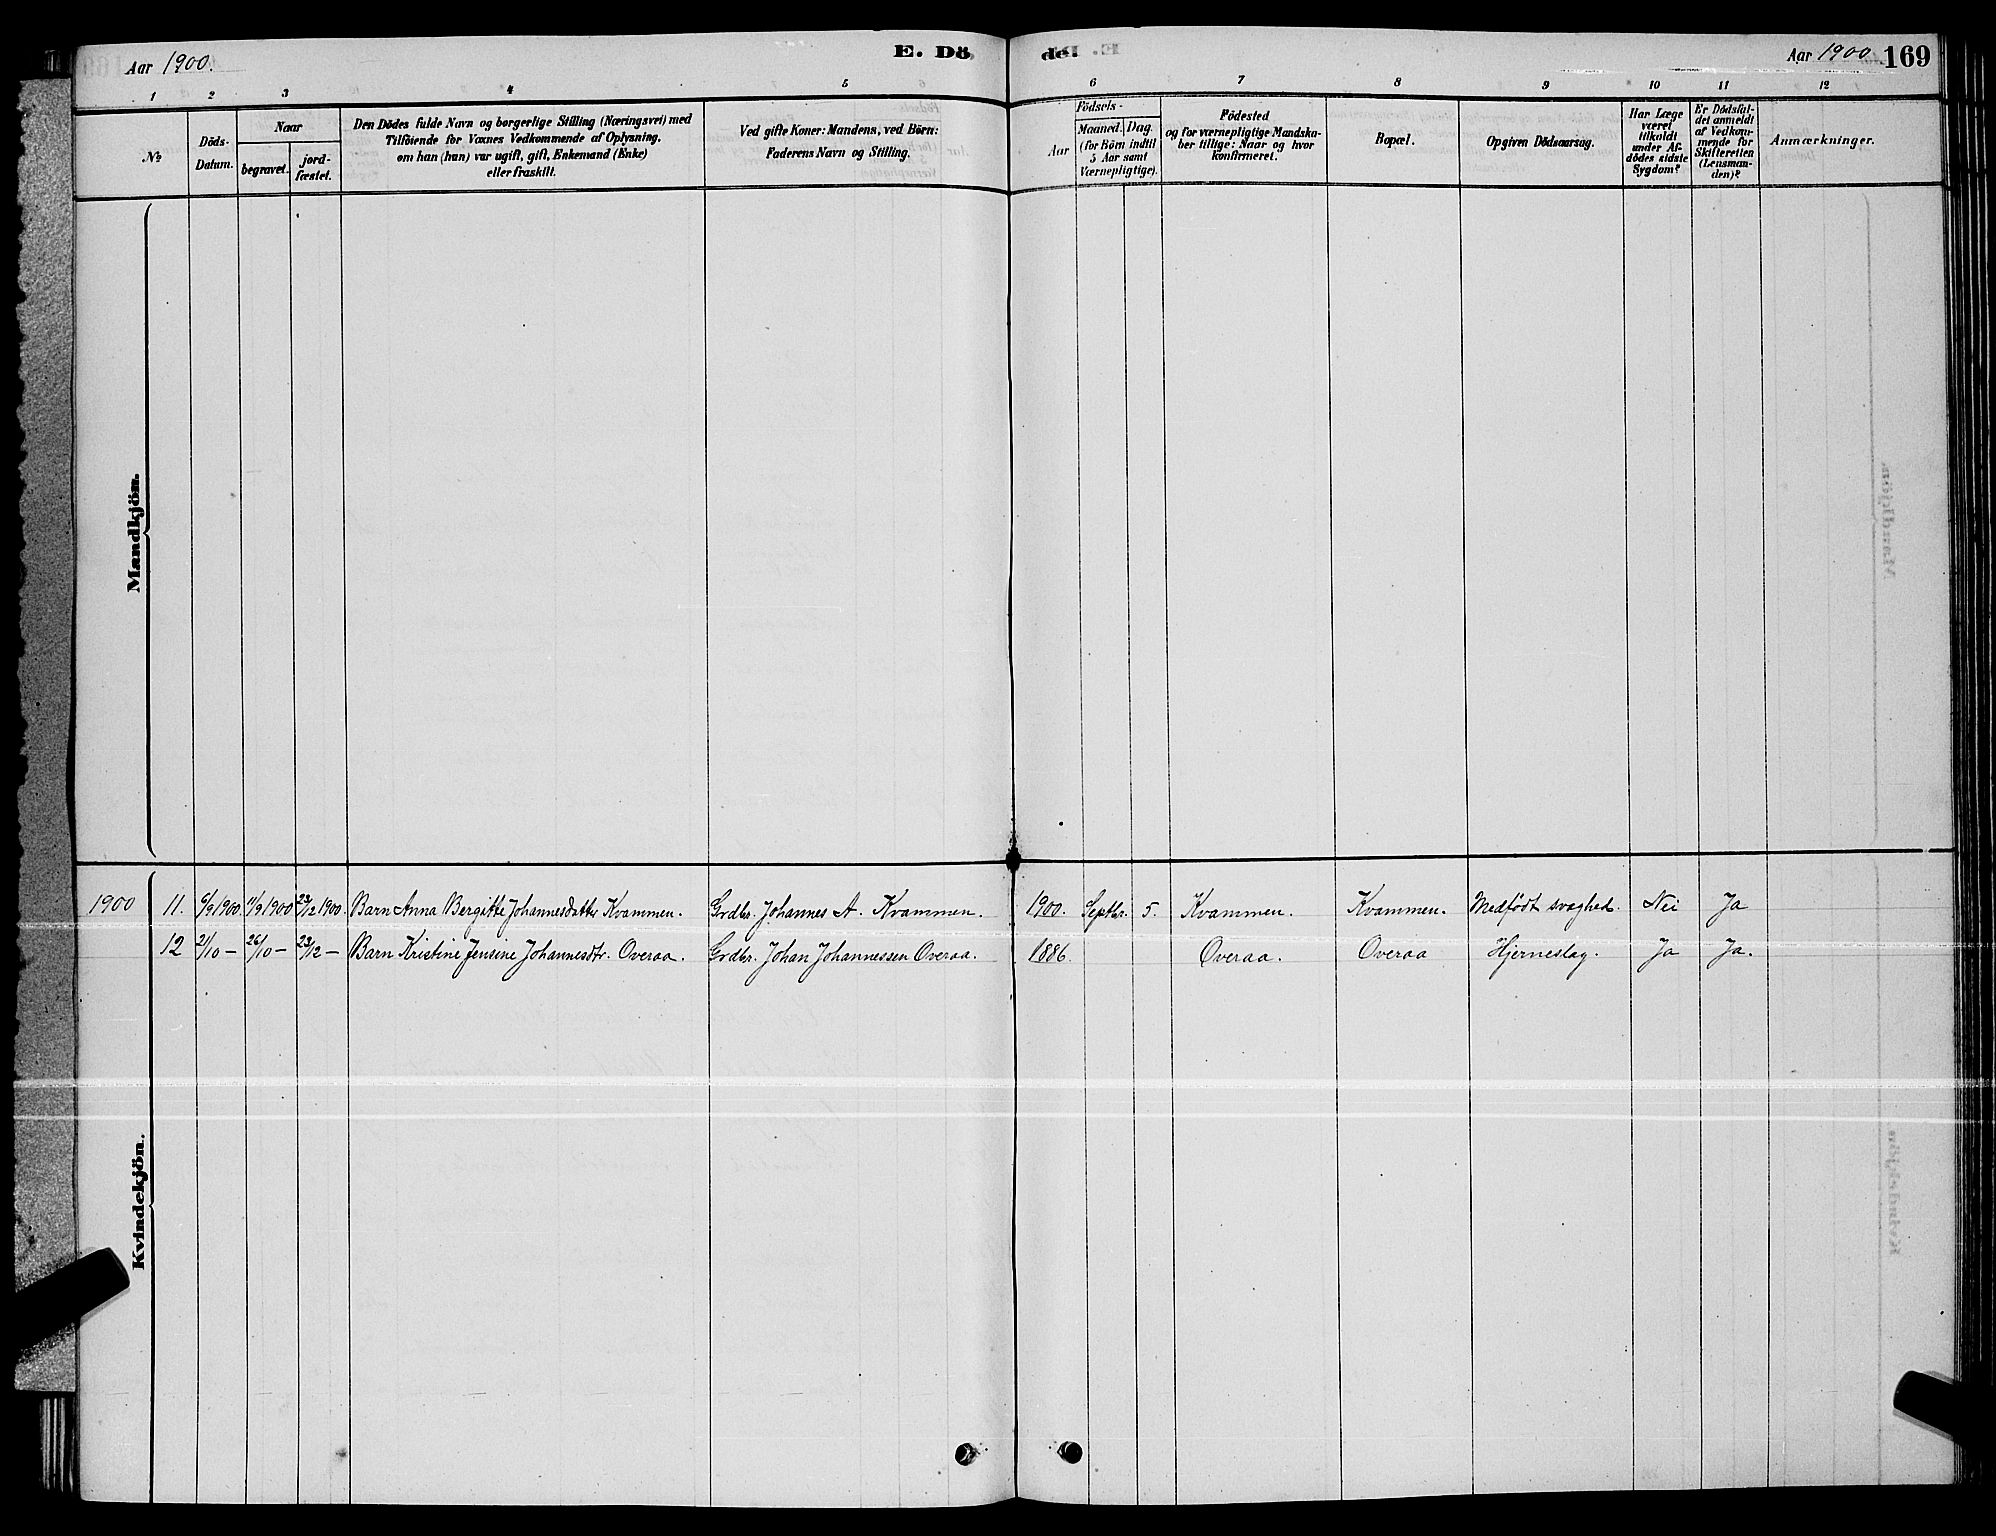 Aar 1900.
E. Dö
de.
Aar 1900
169
1 2 3 4 5 6 7 8 9 10 11 12
№
Döds-
Datum.
Naar
begravet.
jord-
fæstet.
Den Dödes fulde Navn og borgerlige Stilling (Næringsvei) med
Tilföiende for Voxnes Vedkommende af Oplysning,
om han (hun) var ugift, gift, Enkemand (Enke)
eller fraskilt.
Ved gifte Koner: Mandens, ved Börn:
Faderens Navn og Stilling.
Födsels-
Aar
Maaned.
Dag
(for Börn indtil
5 Aar samt
Værnepligtige).
Födested
og for værnepligtige Mandska-
ber tillige: Naar og hvor
konfirmeret.
Bopæl.
Opgiven Dödsaarsag.
Har Læge
været
tilkaldt
under Af-
dödes sidste
Sygdom?
Er Dödsfal-
det anmeldt
af Vedkom-
mende for
Skifteretten
(Lensman-
den)?
Anmærkninger.
Mandkjön.
Kvindekjön.
1900 11. 6/9 1900. 11/9 1900 23/12 1900. Barn Anna Bergitte Johannesdatter Kvammen. Grdbr. Johannes A. Kvammen. 1900. Septbr. 5. Kvammen. Kvammen. Medfödt svaghed. Nei Ja
12 21/10 – 26/10 – 23/12 – Barn Kristine Jensine Johannesdtr. Overaa. Grdbr. Johan Johannessen Overaa. 1886. Overaa. Overaa Hjerneslag. Ja Ja.